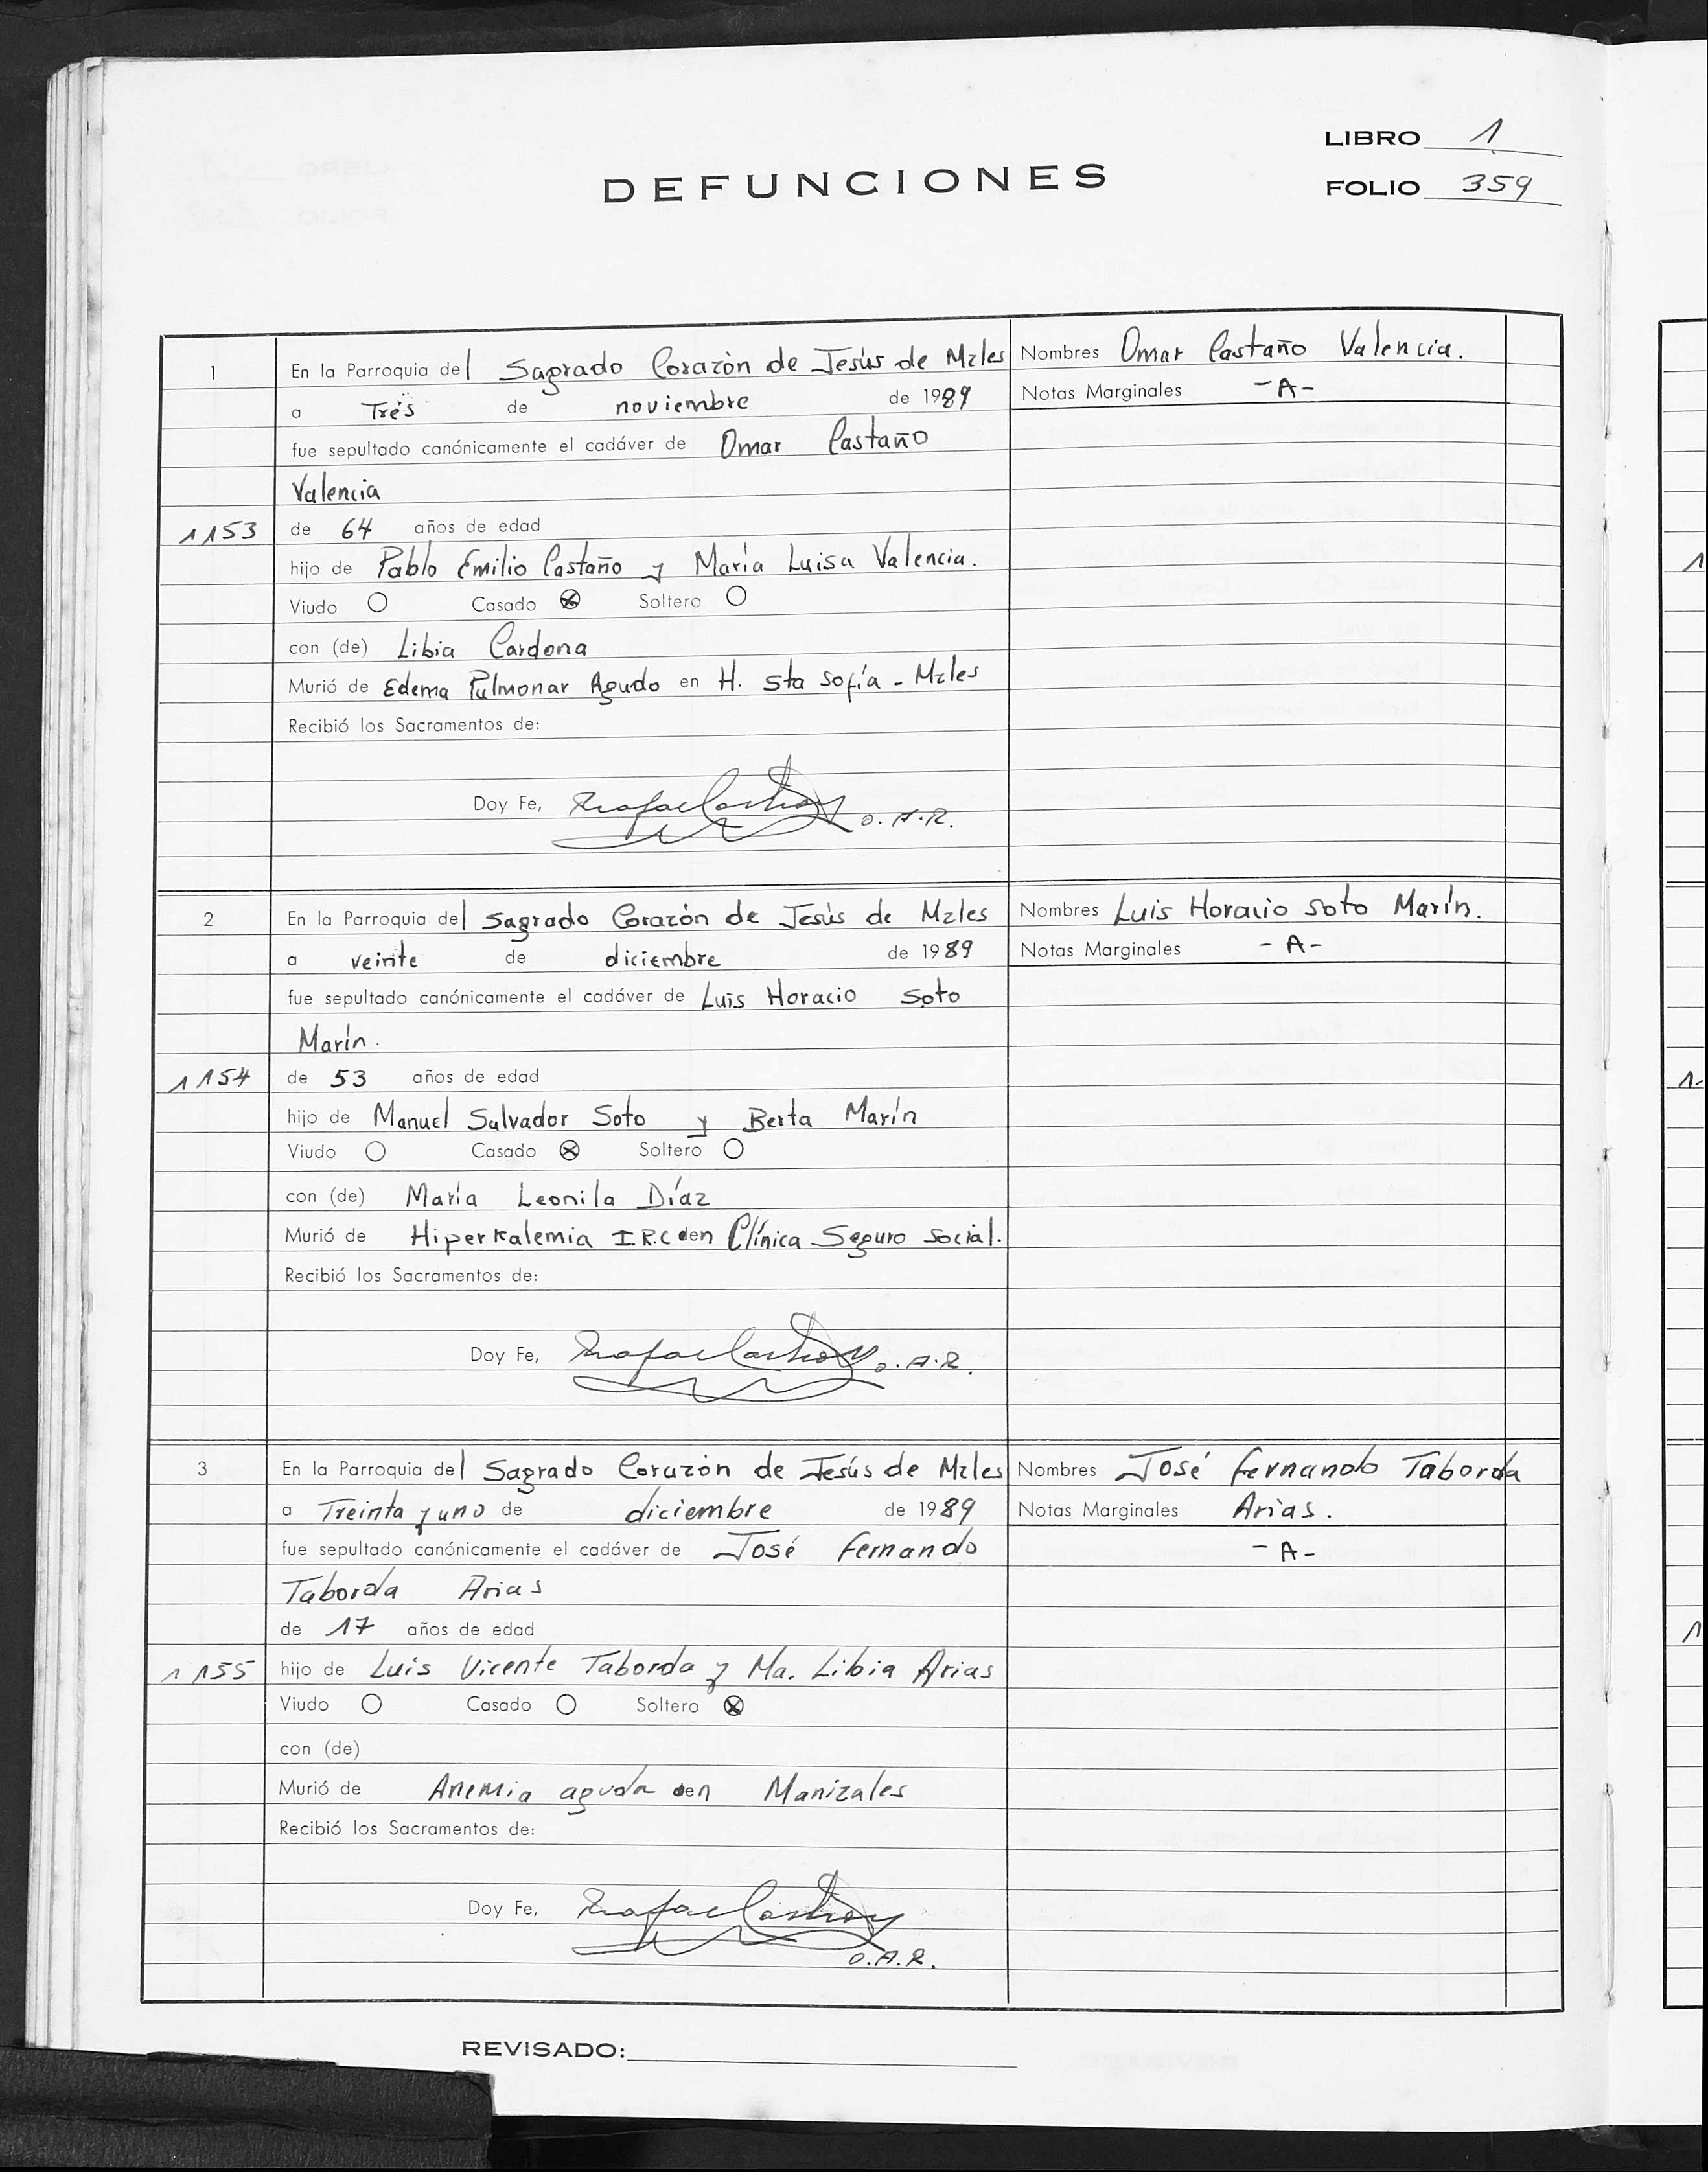 LIBRO 1
DEFUNCIONES
FOLIO 359
1
En la Parroquia del Sagrado Corazòn de Jesús de Mzles
a Tres de noviembre de 1989
fue sepultado canónicamente el cadáver de Omar Castaño
Valencia
1153
de 64 años de edad
hijo de Pablo Emilio Castaño y María Luisa Valencia.
Viudo Casado Soltero
con (de) Libia Cardona
Murió de Edema Pulmonar Agudo en H. Sta Sofía - Mzles
Recibió los Sacramentos de:
Doy Fe, Rafael Castro O.A.R.
Nombres Omar Castaño Valencia.
Notas Marginales -A-
2
En la Parroquia del Sagrado Corazón de Jesús de Mzles
a veinte de diciembre de 1989
fue sepultado canónicamente el cadáver de Luis Horacio Soto
Marín.
1154
de 53 años de edad
hijo de Manuel Salvador Soto y Berta Marín
Viudo Casado Soltero
con (de) María Leonila Díaz
Murió de Hiperkalemia I.R.C en Clínica Seguro Social.
Recibió los Sacramentos de:
Doy Fe, Rafael Castro O.A.R.
Nombres Luis Horacio Soto Marín.
Notas Marginales -A-
3
En la Parroquia del Sagrado Corazón de Jesús de Mzles
a Treinta y uno de diciembre de 1989
fue sepultado canónicamente el cadáver de José Fernando
Taborda Arias
de 17 años de edad
1155
hijo de Luis Vicente Taborda y Ma. Libia Arias
Viudo Casado Soltero
con (de)
Murió de Anemia aguda en Manizales
Recibió los Sacramentos de:
Doy Fe, Rafael Castro
O.A.R.
Nombres José Fernando Taborda
Notas Marginales Arias.
-A-
REVISADO: